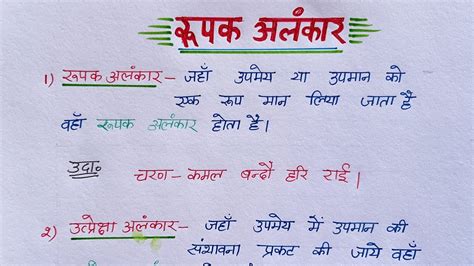 रूपक अलंकार
1) रूपक अलंकार – जहाँ उपमेय या उपमान को
एक रूप मान लिया जाता है
वहाँ रूपक अलंकार होता है।
उदा०
चरण – कमल बन्दौ हरि राई।
२) उत्प्रेक्षा अलंकार – जहाँ उपमेय में उपमान की
संभावना प्रकट की जाये वहाँ